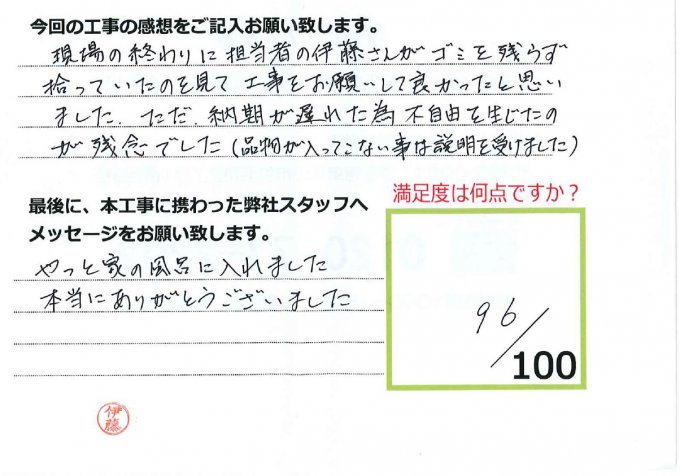 今回の工事の感想をご記入お願い致します。
現場の終わりに担当者の伊藤さんがゴミを残らず
拾っていたのを見て工事をお願いして良かったと思い
ました。ただ、納期が遅れた為不自由を生じたの
が残念でした(品物が入ってこない事は説明を受けました)
満足度は何点ですか？
最後に、本工事に携わった弊社スタッフへ
メッセージをお願い致します。
やっと家の風呂に入れました
本当にありがとうございました
96/100
伊藤